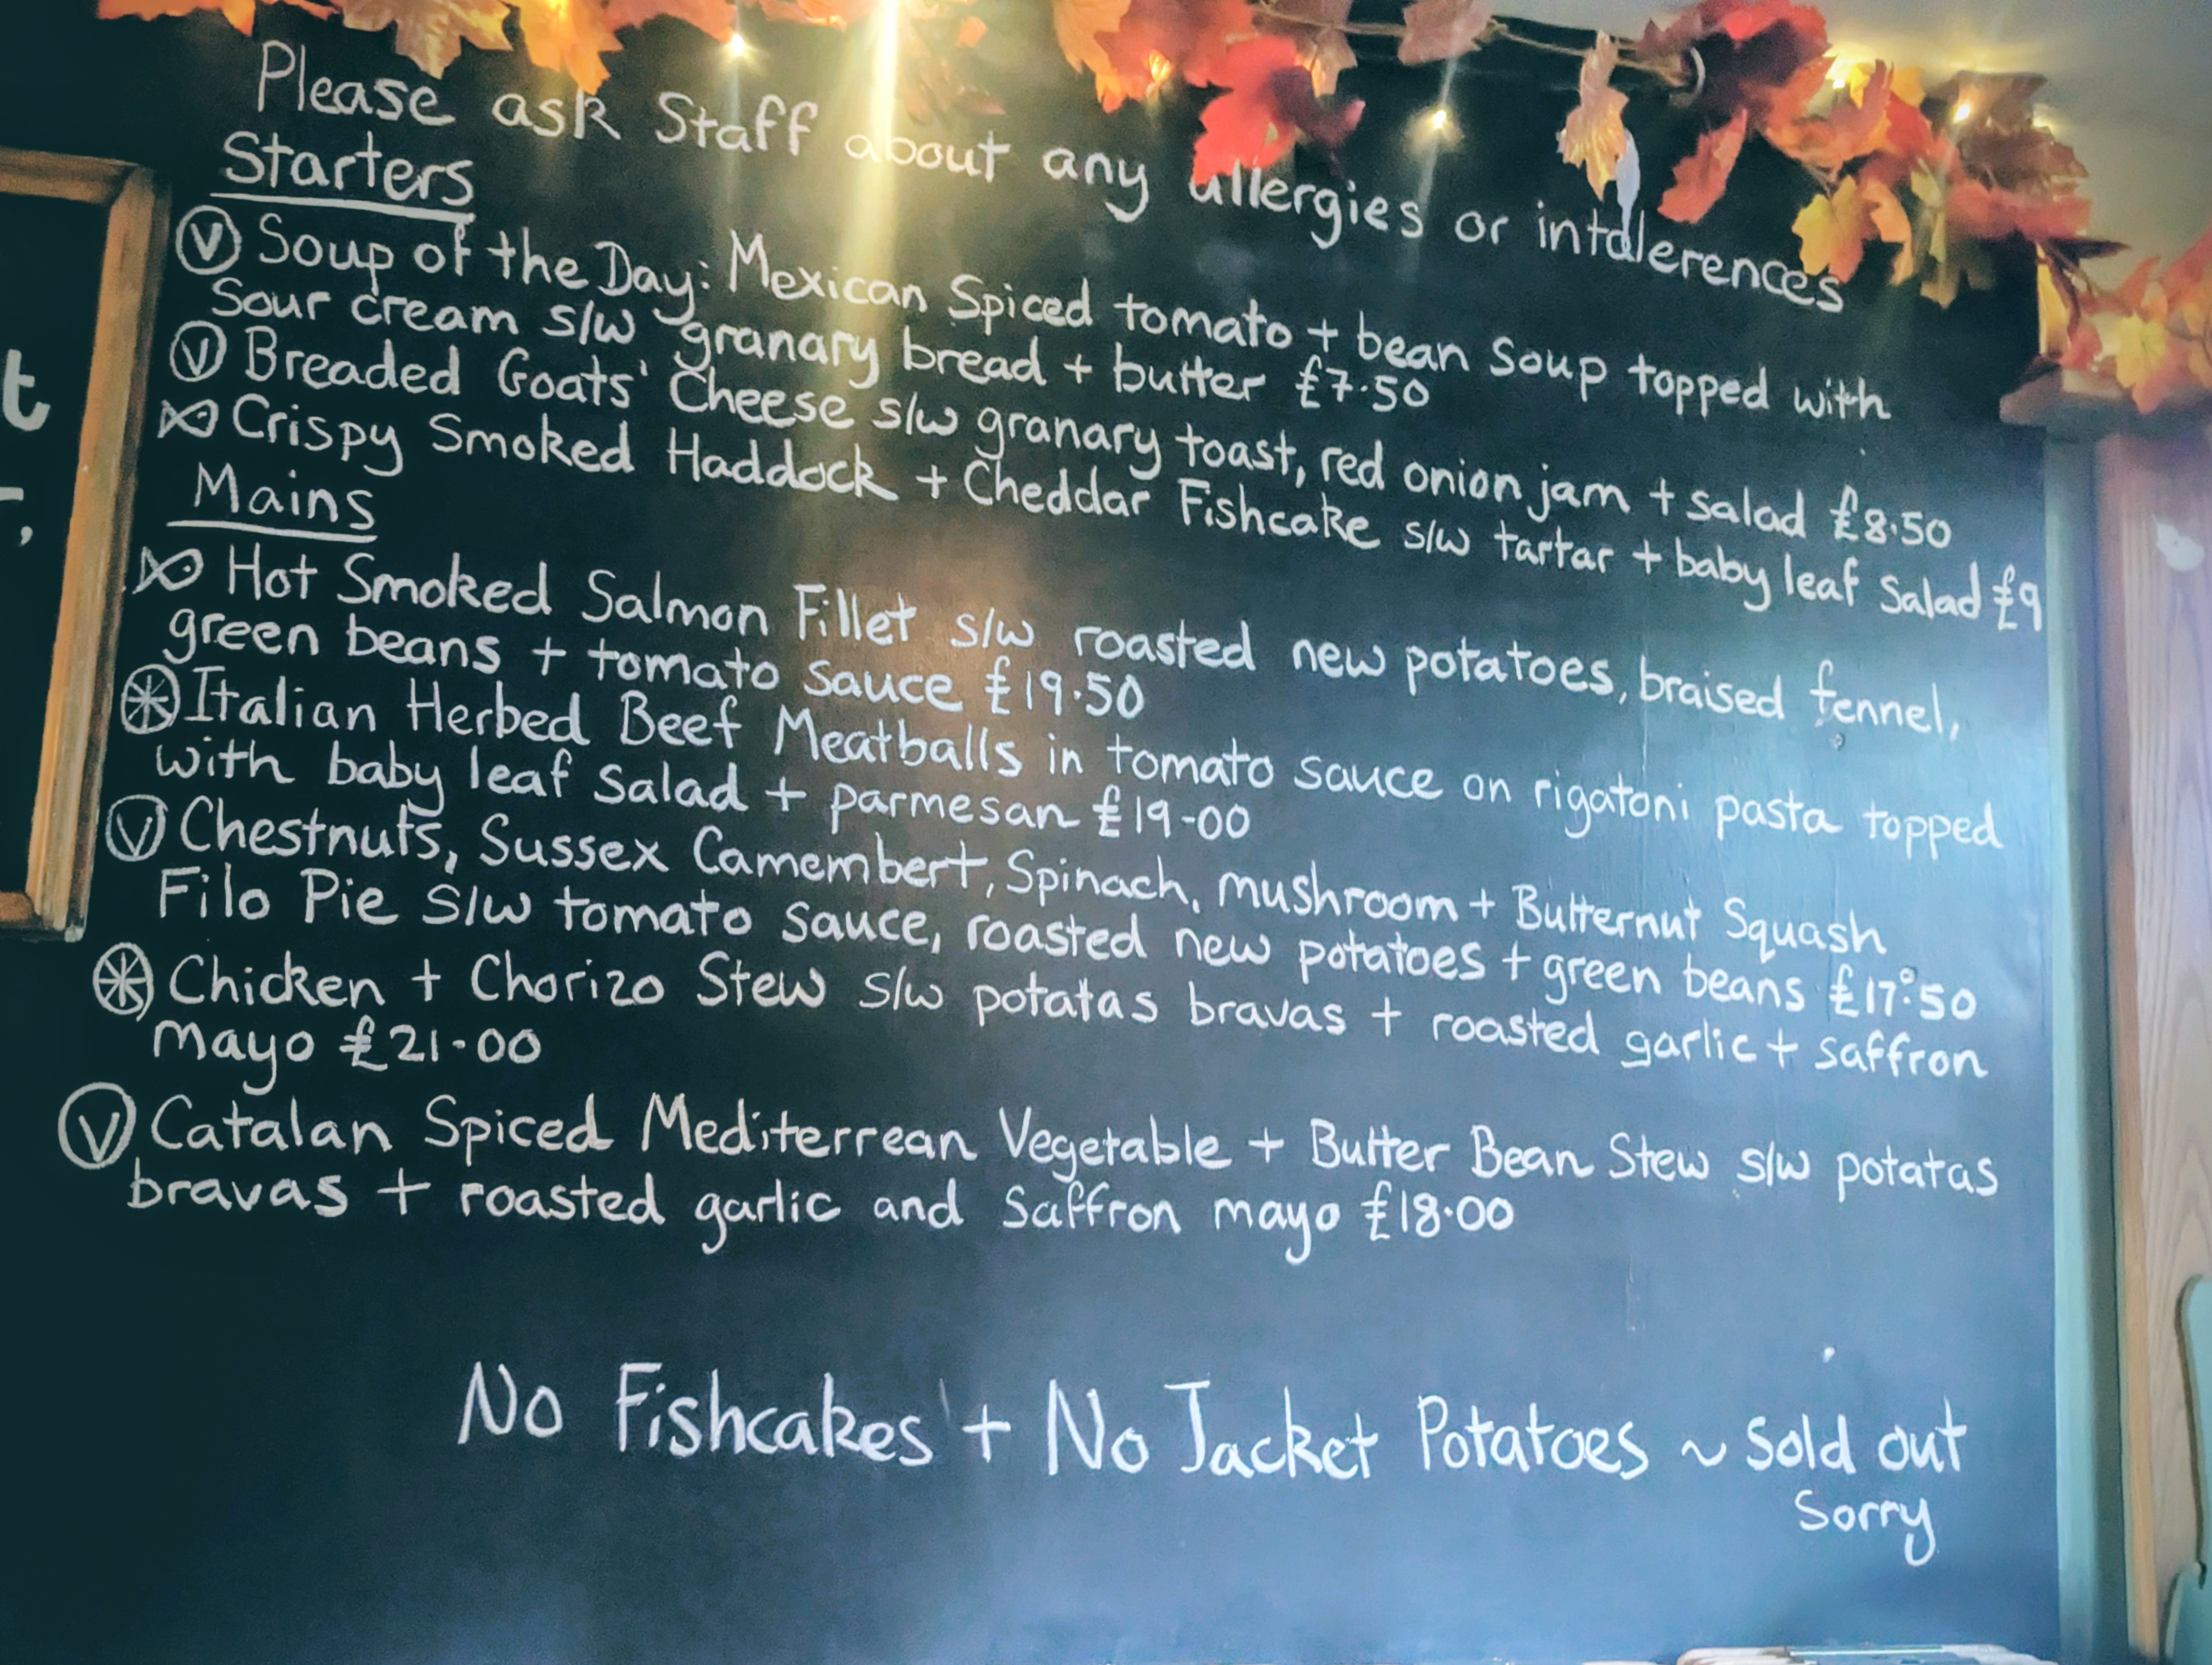 Please ask Staff about any allergies or intolerences
Starters
V Soup of the Day: Mexican Spiced tomato + bean Soup topped with
Sour cream s/w granary bread + butter £7.50
V Breaded Goats' Cheese s/w granary toast, red onion jam + salad £8.50
Crispy Smoked Haddock + Cheddar Fishcake s/w tartar + baby leaf Salad £9
Mains
Hot Smoked Salmon Fillet s/w roasted new potatoes, braised fennel,
green beans + tomato sauce £19.50
Italian Herbed Beef Meatballs in tomato sauce on rigatoni pasta topped
with baby leaf salad + parmesan £19-00
V Chestnuts, Sussex Camembert, Spinach, mushroom + Butternut Squash
Filo Pie s/w tomato sauce, roasted new potatoes + green beans £17.50
Chicken + Chorizo Stew s/w potatas bravas + roasted garlic + saffron
mayo £21-00
V Catalan Spiced Mediterrean Vegetable + Butter Bean Stew s/w potatas
bravas + roasted garlic and Saffron mayo £18.00
No Fishcakes + No Jacket Potatoes ~ Sold out
Sorry
t